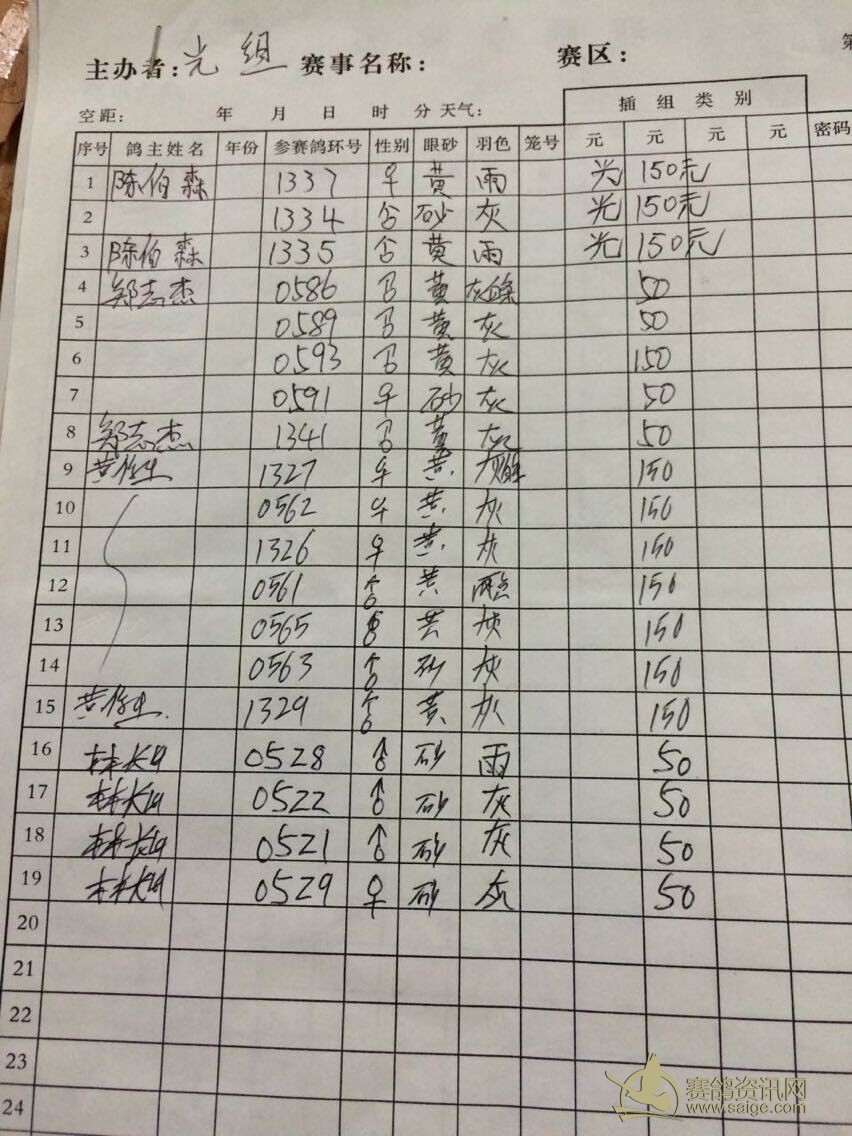 主办者: 光组 赛事名称: 赛区: 第
空距: 年 月 日 时 分 天气: 插组类别
序号 鸽主姓名 年份 参赛鸽环号 性别 眼砂 羽色 笼号 元 元 元 元 密码
1 陈伯森 1337 ♀ 黄 雨 光 150元
2 1334 ♂ 砂 灰 光 150元
3 陈伯森 1335 ♂ 黄 雨 光 150元
4 郑志杰 0586 ♂ 黄 50
5 0589 ♂ 黄 灰 50
6 0593 ♂ 黄 灰 150
7 0591 ♀ 砂 灰 50
8 郑志杰 1341 ♂ 黄 灰 50
9 1327 ♀ 黄 150
10 0562 ♀ 黄 灰 150
11 1326 ♀ 黄 灰 150
12 0561 ♂ 黄 150
13 0565 ♂ 黄 灰 150
14 0563 ♂ 砂 灰 150
15 1329 ♂ 黄 灰 150
16 0528 ♂ 砂 雨 50
17 0522 ♂ 砂 灰 50
18 0521 ♂ 砂 灰 50
19 0529 ♀ 砂 灰 50
20
21
22
23
24
赛鸽资讯网
www.saige.com